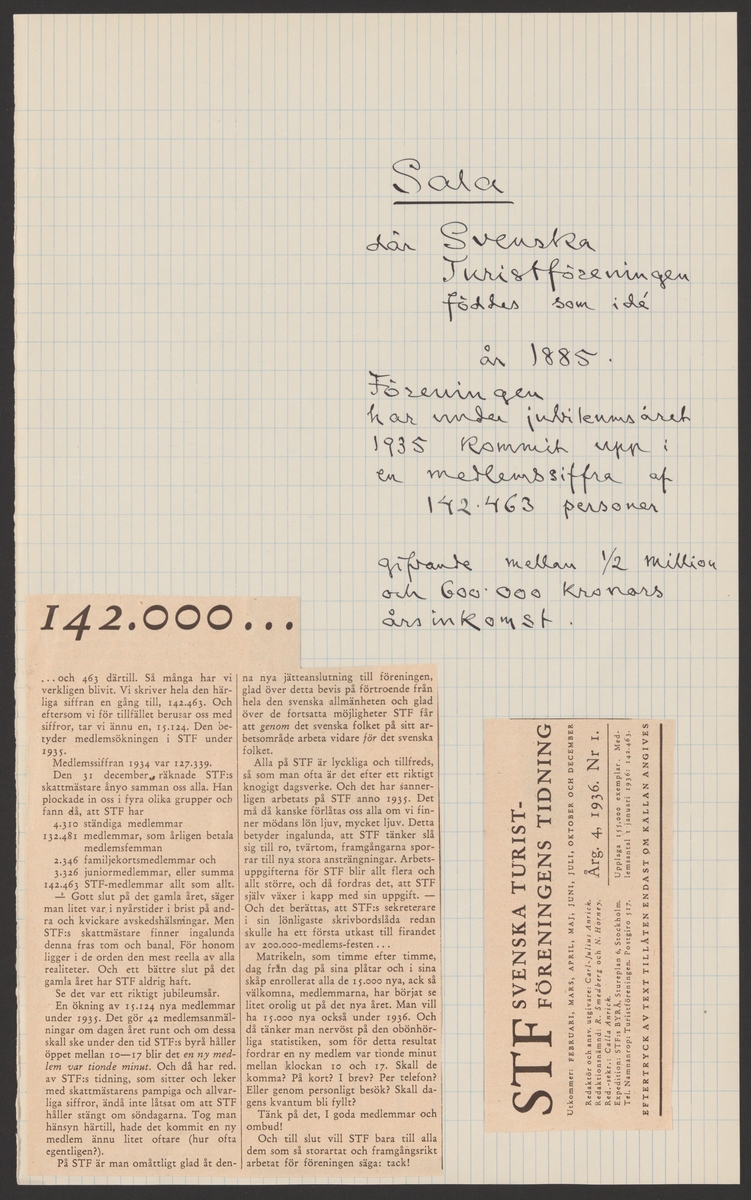 Sala
där Svenska
Turistföreningen
föddes som idé
år 1885.
Föreningen
har under jubileumsåret
1935 kommit upp i
en medlemssiffra af
142.463 personer
gifvande mellan 1/2 million
och 600.000 kronors
årsinkomst.
142.000...
...och 463 därtill. Så många har vi
verkligen blivit. Vi skriver hela den här-
liga siffran en gång till, 142.463. Och
eftersom vi för tillfället berusar oss med
siffror, tar vi ännu en, 15.124. Den be-
tyder medlemsökningen i STF under
1935.
Medlemssiffran 1934 var 127.339.
Den 31 december räknade STF:s
skattmästare ånyo samman oss alla. Han
plockade in oss i fyra olika grupper och
fann då, att STF har
4.310 ständiga medlemmar
132.481 medlemmar, som årligen betala
medlemsfemman
2.346 familjekortsmedlemmar och
3.326 juniormedlemmar, eller summa
142.463 STF-medlemmar allt som allt.
— Gott slut på det gamla året, säger
man litet var i nyårstider i brist på and-
ra och kvickare avskedshälsningar. Men
STF:s skattmästare finner ingalunda
denna fras tom och banal. För honom
ligger i de orden den mest reella av alla
realiteter. Och ett bättre slut på det
gamla året har STF aldrig haft.
Se det var ett riktigt jubileumsår.
En ökning av 15.124 nya medlemmar
under 1935. Det gör 42 medlemsanmäl-
ningar om dagen året runt och om dessa
skall ske under den tid STF:s byrå håller
öppet mellan 10—17 blir det en ny med-
lem var tionde minut. Och då har red.
av STF:s tidning, som sitter och leker
med skattmästarens pampiga och allvar-
liga siffror, ändå inte låtsat om att STF
håller stängt om söndagarna. Tog man
hänsyn härtill, hade det kommit en ny
medlem ännu litet oftare (hur ofta
egentligen?).
På STF är man omåttligt glad åt den-
na nya jätteanslutning till föreningen,
glad över detta bevis på förtroende från
hela den svenska allmänheten och glad
över de fortsatta möjligheter STF får
att genom det svenska folket på sitt ar-
betsområde arbeta vidare för det svenska
folket.
Alla på STF är lyckliga och tillfreds,
så som man ofta är det efter ett riktigt
knogigt dagsverke. Och det har sanner-
ligen arbetats på STF anno 1935. Det
må då kanske förlåtas oss alla om vi fin-
ner mödans lön ljuv, mycket ljuv. Detta
betyder ingalunda, att STF tänker slå
sig till ro, tvärtom, framgångarna spor-
rar till nya stora ansträngningar. Arbets-
uppgifterna för STF blir allt flera och
allt större, och då fordras det, att STF
själv växer i kapp med sin uppgift. —
Och det berättas, att STF:s sekreterare
i sin lönligaste skrivbordslåda redan
skulle ha ett första utkast till firandet
av 200.000-medlems-festen...
Matrikeln, som timme efter timme,
dag från dag på sina plåtar och i sina
skåp enrollerat alla de 15.000 nya, ack så
välkomna, medlemmarna, har börjat se
litet orolig ut på det nya året. Man vill
ha 15.000 nya också under 1936. Och
då tänker man nervöst på den obönhör-
liga statistiken, som för detta resultat
fordrar en ny medlem var tionde minut
mellan klockan 10 och 17. Skall de
komma? På kort? I brev? Per telefon?
Eller genom personligt besök? Skall da-
gens kvantum bli fyllt?
Tänk på det, I goda medlemmar och
ombud!
Och till slut vill STF bara till alla
dem som så storartat och framgångsrikt
arbetat för föreningen säga: tack!
STF SVENSKA TURIST-
FÖRENINGENS TIDNING
Utkommer: FEBRUARI, MARS, APRIL, MAJ, JUNI, JULI, OKTOBER OCH DECEMBER
Redaktör och ansv. utgivare: Carl-Julius Anrick.
Redaktionsnämnd: R. Smedberg och N. Horney.
Red.-sekr.: Calla Anrick.
Årg. 4, 1936. Nr 1.
Expedition: STF:s BYRÅ, Stureplan 6, Stockholm.
Tel. Namnanrop: Turistföreningen. Postgiro 517.
Upplaga 155,000 exemplar. Med-
lemsantal 1 januari 1936: 142.463.
EFTERTRYCK AV TEXT TILLÅTEN ENDAST OM KÄLLAN ANGIVES